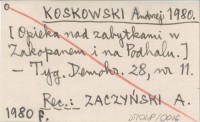 KOSKOWSKI Andrzej 1980.
[Opieka nad zabytkami w
Zakopanem i na Podhalu.]
– Tyg. Demokr. 28, nr 11.
Rec.: ZACZYŃSKI A.
1980 r.